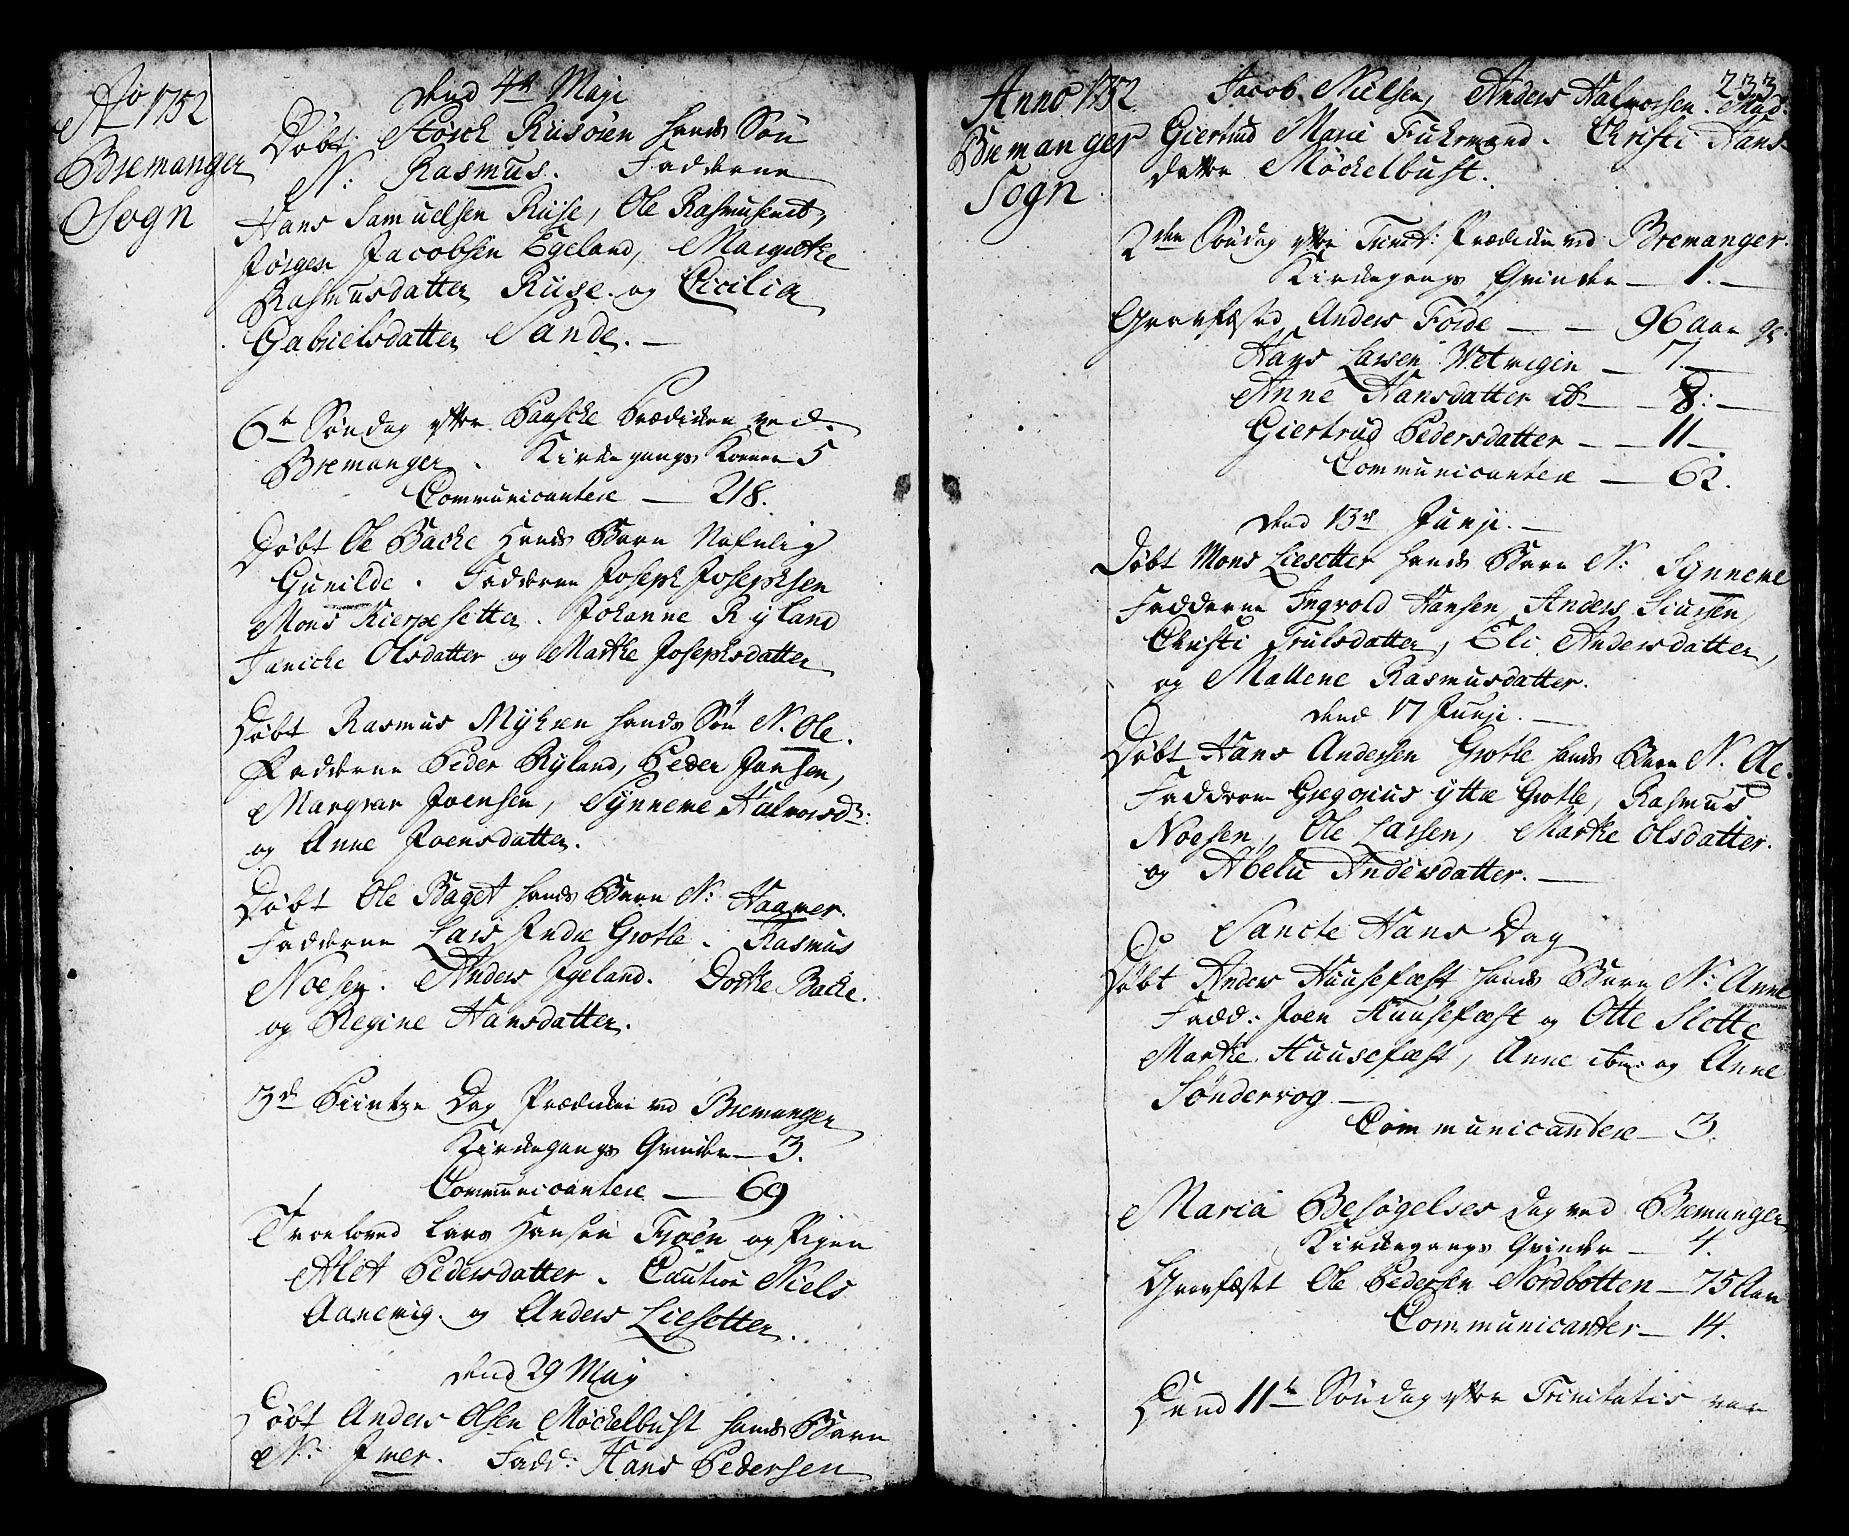 Ao 1752
Bremanger
Sogn
dend 4de Maji
Døbt Störch Rusöien hands Søn
N: Rasmus. Fadderne
Hans Samuelsen Ruse, Ole Rasmusen ib,
Jørgen Jacobsen Egeland, Margrethe
Rasmusdatter Ruse og Cicilia
Gabrielsdatter Sande.
6te Søndag efter Paasche Prædiken ved
Bremanger. Kirkegangs Koner 5
Communicantere — 218.
Døbt Ole Backe hands Barn Nafnlig
Gunilde. Fadderne Joseph Josephsen
Mons Kierpesetter. Johanne Ryland
Janicke Olsdatter og Marthe Josephsdatter
Døbt Rasmus Myhren hands Søn N. Ole.
Fadderne Peder Ryland, Peder Jansen,
Joensen, Synneve Halvorsd:
og Anne Joensdatter.
Døbt Ole Baget hands Barn N: Haaver.
Fadderne Lars Indre Grotle. Rasmus
Noesen. Anders Igeland. Dorthe Backe.
og Regine Hansdatter.
3de Pintze Dag Prædiken ved Bremanger
Kirkegangs Qvinder — 3.
Communicantere — 69
Troeloved Lars Hansen og Pigen
Alet Pedersdatter. Caution Niels
Aanevig. og Anders Liesetter.
dend 29 May
Døbt Anders Olsen Möckelbust hands Barn
N: Iver. Fadd: Hans Pedersen
233
Anno 1752
Bremanger
Sogn
Jacob Nielsen, Anders Halvorsen. Mad.
Giertrud Marie Fuhrmand. Christi Hans
datter Möckelbust.
2den Søndag efter Trinit: Prædiken ved Bremanger.
Kirkegangs Qvinder — 1. —
Gravfæsted Anders Förde — — 96 aar gl.
Hans Larsen Wetvigen — 7. —
Anne Hansdatter ib — 8: —
Giertrud Pedersdatter — — 11 —
Communicantere — 62.
dend 13de Junji. —
Døbt Mons Liesetter hands Barn N: Synneve
Fadderne Ingvold Hansen, Anders Siursen,
Christi Trulsdatter, Eli Andersdatter,
og Mallene Rasmusdatter.
dend 17 Junji. —
Døbt Hans Andersen Grotle hands Barn N. Ole.
Fadderne Gregorius yttre Grotle, Rasmus
Noesen, Ole Larsen, Marthe Olsdatter.
og Abelu Andersdatter. —
Sancte Hans Dag
Døbt Anders Huusefæst hands Barn N: Anne
Fadd: Joen Huusefæst og Otte Slotte
Marthe Huusefæst, Anne ibm: og Anne
Søndervog —
Communicantere — 3.
Maria Besøgelses Dag ved Bremanger
Kirkegangs Qvinder — 4.
Gravfæstet Ole Pedersen Nordbotten — 75 Aar
Communicanter — 14.
Dend 11te Søndag efter Trinitatis var